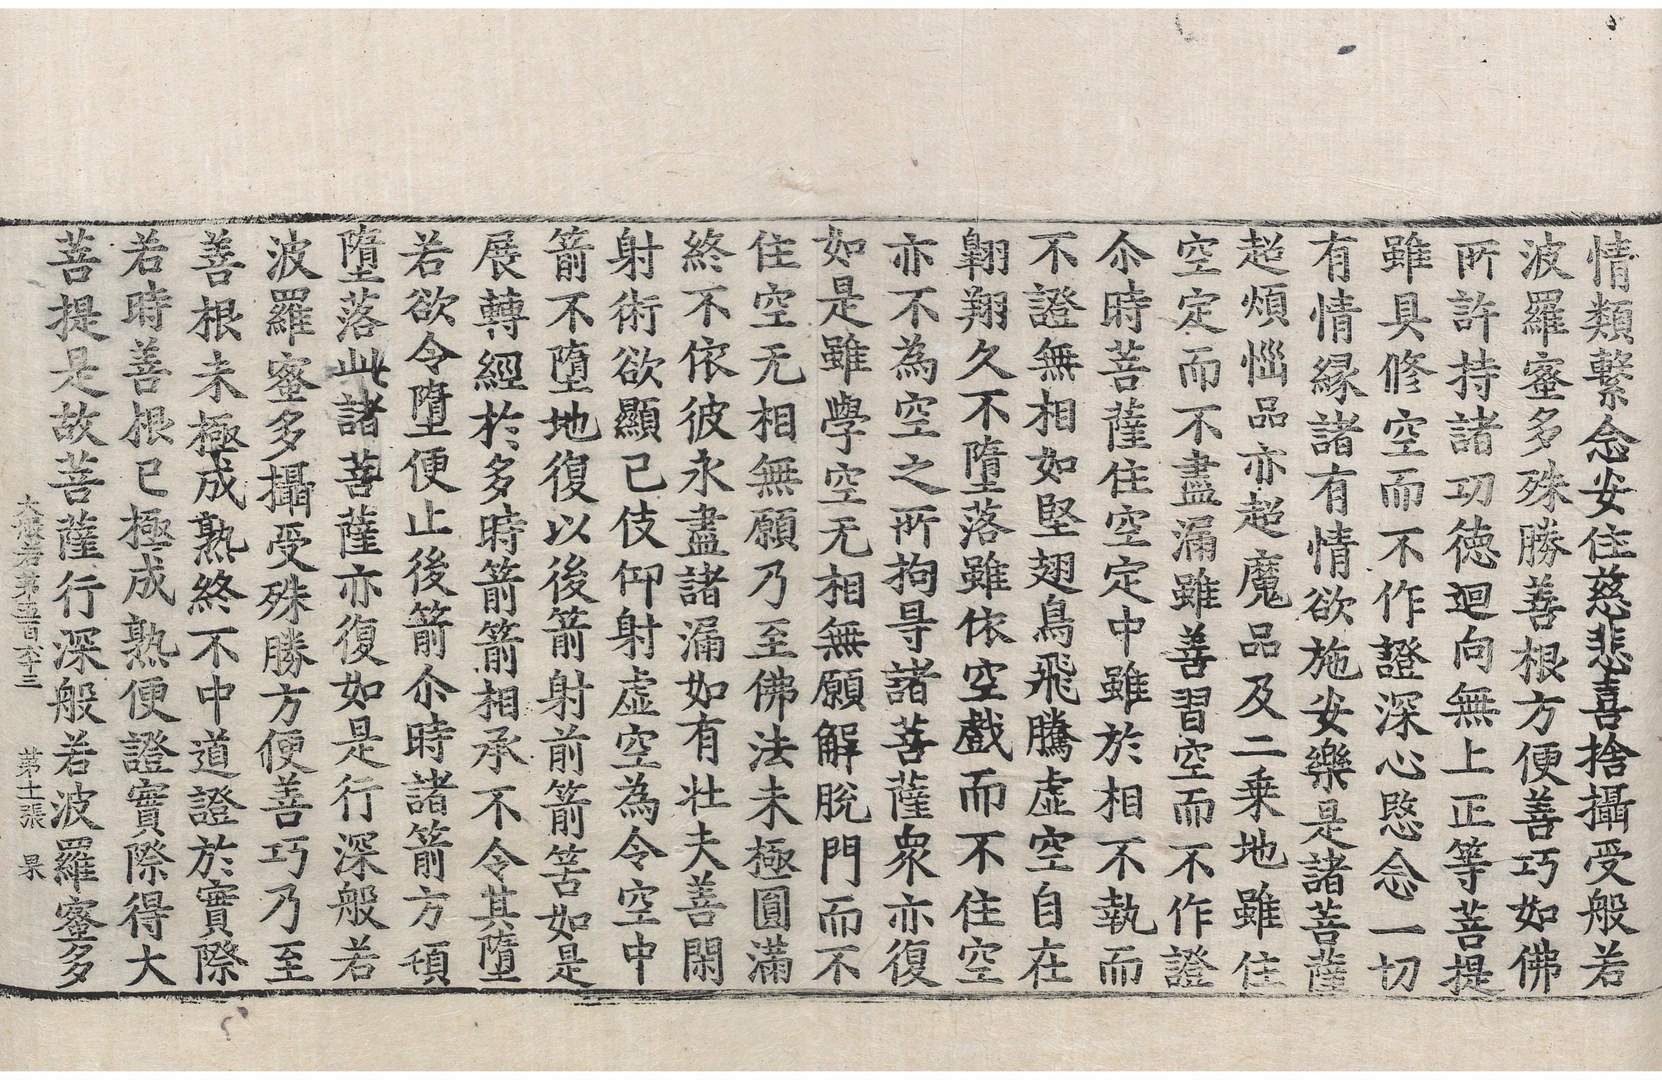 情類繫念安住慈悲喜捨攝受般若
波羅蜜多殊勝善根方便善巧如佛
所許持諸功德迴向無上正等菩提
雖具修空而不作證深心愍念一切
有情緣諸有情欲施安樂是諸菩薩
超煩惱品亦超魔品及二乘地雖住
空定而不盡漏雖善習空而不作證
尒時菩薩住空定中雖於相不執而
不證無相如堅翅鳥飛騰虛空自在
翱翔久不墮落雖依空戲而不住空
亦不為空之所拘㝵諸菩薩衆亦復
如是雖學空无相無願解脫門而不
住空无相無願乃至佛法未極圓滿
終不依彼永盡諸漏如有壯夫善閑
射術欲顯己伎仰射虛空為令空中
箭不墮地復以後箭射前箭筈如是
展轉經於多時箭箭相承不令其墮
若欲令墮便止後箭尒時諸箭方頓
墮落此諸菩薩亦復如是行深般若
波羅蜜多攝受殊勝方便善巧乃至
善根未極成熟終不中道證於實際
若時善根已極成熟便證實際得大
菩提是故菩薩行深般若波羅蜜多
大般若第五百六十三 第十張 果